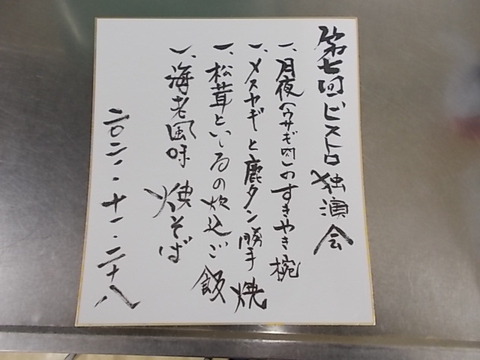 第七回ビストロ独演会
一、月夜(ウサギ肉)のすきやき椀
一、メスヤギと鹿タン勝手焼
一、松茸といくらの炊込ご飯
一、海老風味焼そば
二〇二一・十一・二十八